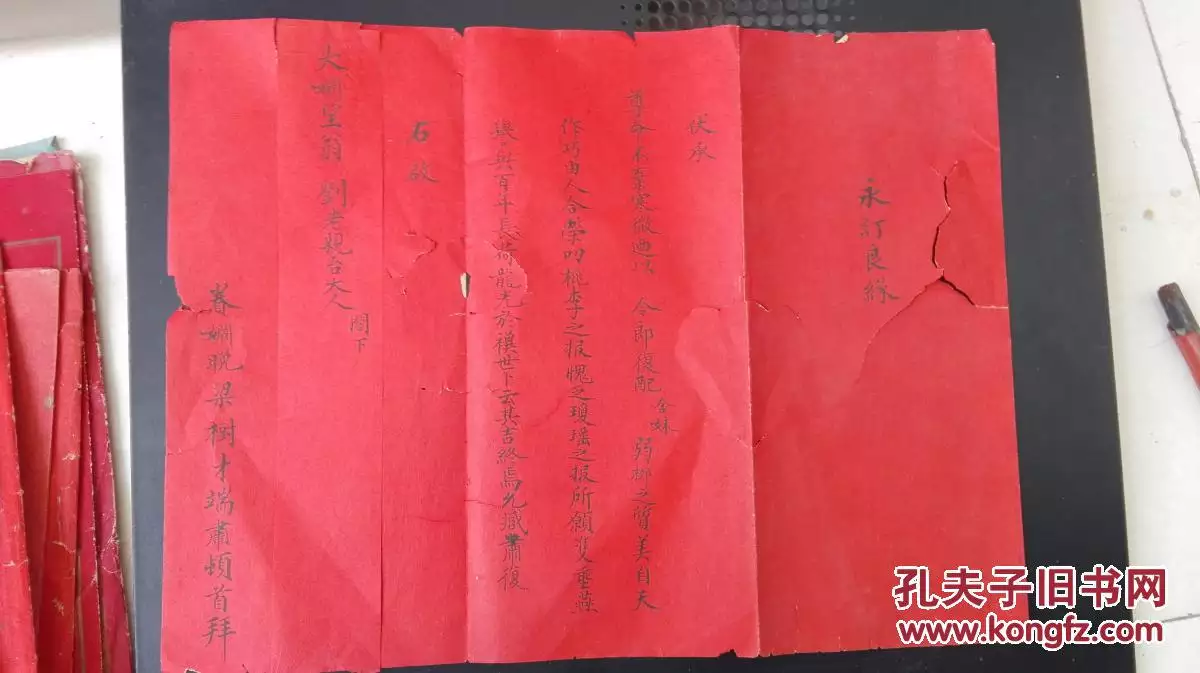 永訂良緣
伏承
尊命不棄寒微迺以 令郎復配 舍妹 弱柳之質美自天
作巧由人合榮叨桃李之报愧乏瓊瑶之报所願雙垂燕
與百年長荷龍光於穓世卜云其吉終焉允臧肅復
右啟
大姻望翁 劉老親台大人 閣下
眷姻晚梁樹才端肅頓首拜
孔夫子旧书网
www.kongfz.com